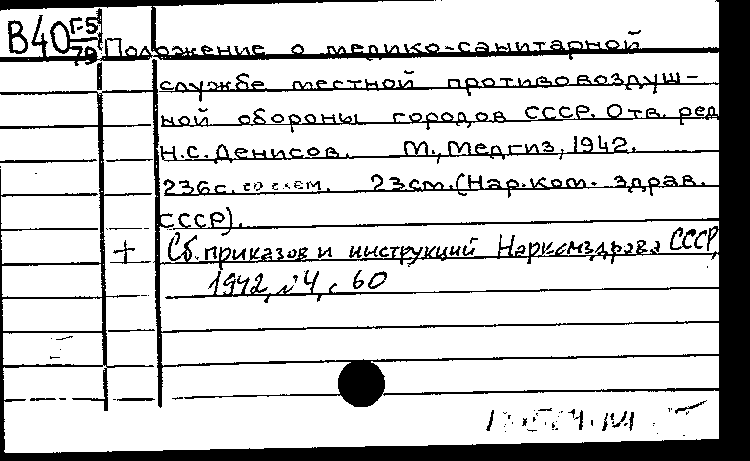 В40 Г-5/79
Положение о медико-санитарной
службе местной противовоздуш-
ной обороны городов СССР. Отв. ред
Н.С. Денисов. М., Медгиз, 1942.
236с. со схем. 23см. (Нар. ком. здрав.
СССР).
+ Сб. приказов и инструкций Наркомздрава СССР,
1942, №4, с 60